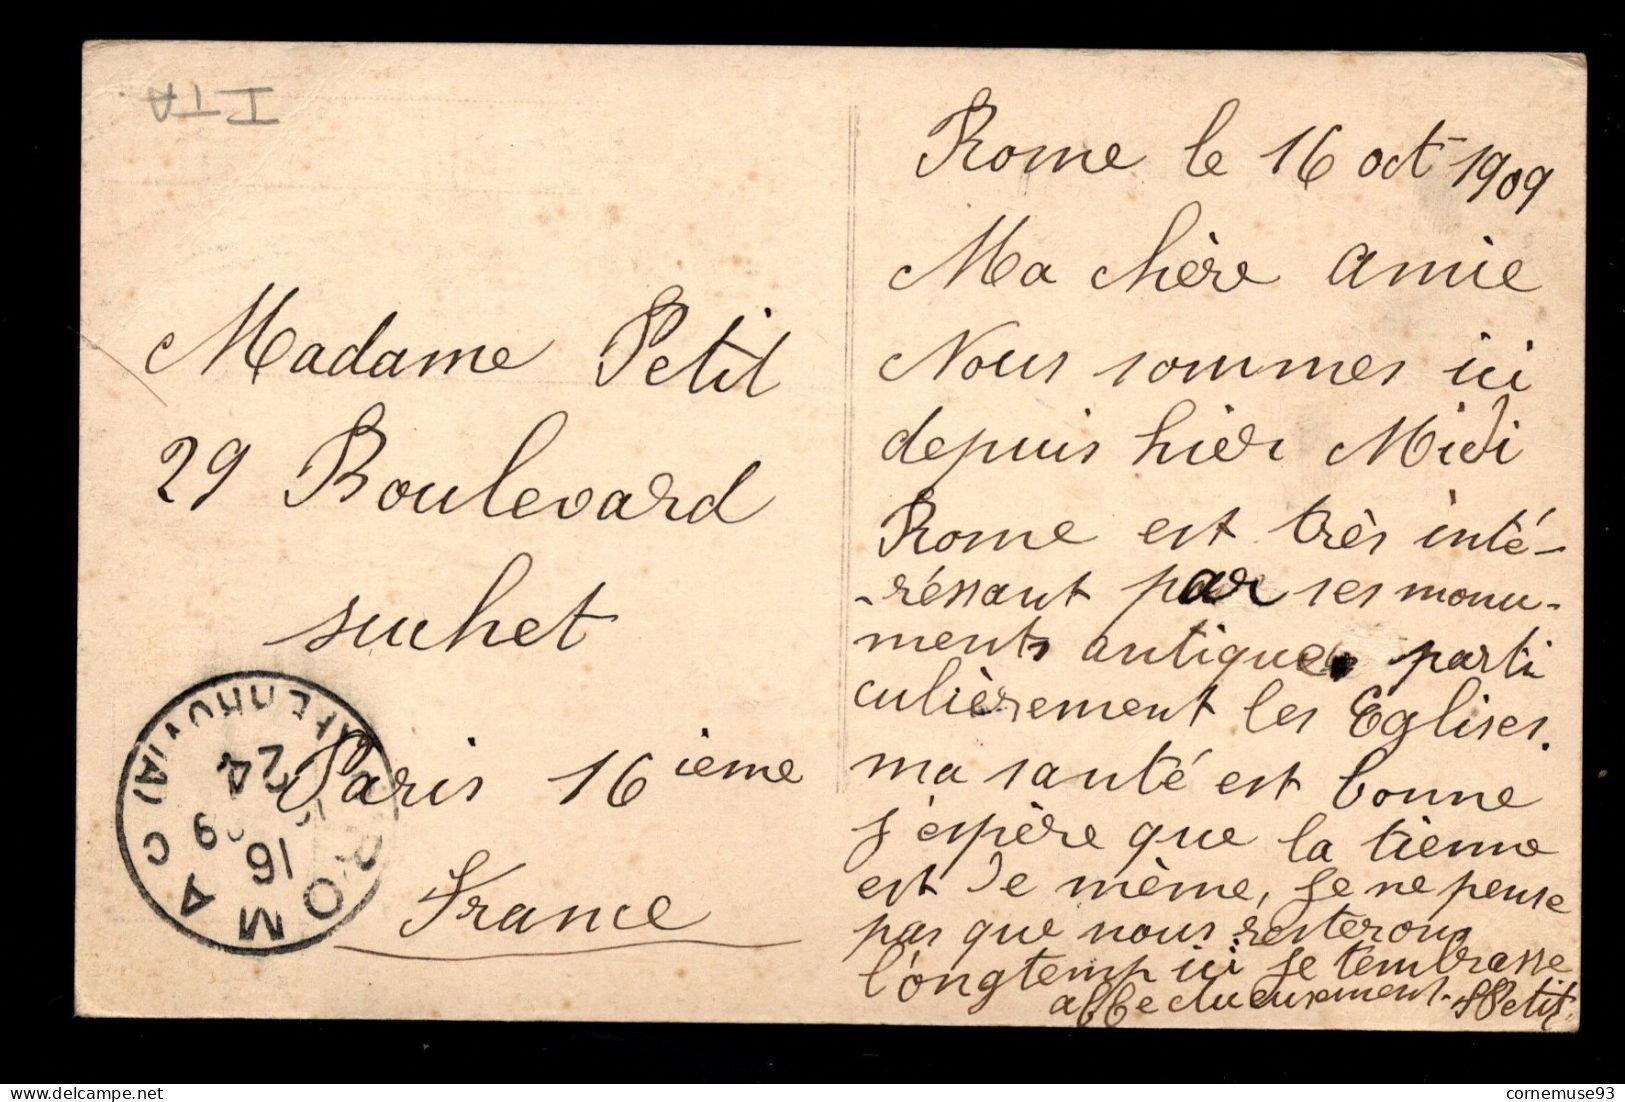 ITA
Madame Petit
29 Boulevard
suchet
Paris 16 ieme
France
ROMA C
24
16
9
Rome le 16 oct 1909
Ma chère amie
Nous sommes ici
depuis hier Midi
Rome est très inté-
-réssant par ses monu-
ments antiques parti
culièrement les Eglises.
ma santé est bonne
j'espère que la tienne
est de même, je ne pense
pas que nous resterons
l'ongtemp ici je t'embrasse
affectueusement. Petit
cornemuse93